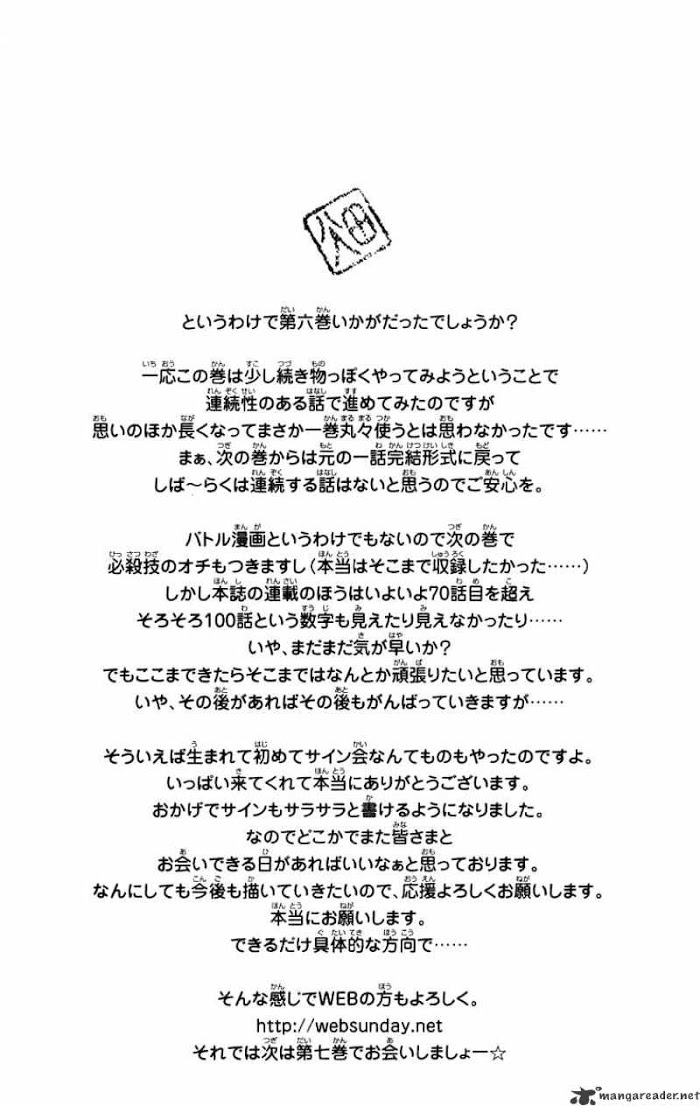 というわけで第六巻いかがだったでしょうか?
一応この巻は少し続き物っぽくやってみようということで
連続性のある話で進めてみたのですが
思いのほか長くなってまさか一巻丸々使うとは思わなかったです……
まぁ、次の巻からは元の一話完結形式に戻って
しば〜らくは連続する話はないと思うのでご安心を。
バトル漫画というわけでもないので次の巻で
必殺技のオチもつきますし(本当はそこまで収録したかった……)
しかし本誌の連載のほうはいよいよ70話目を超え
そろそろ100話という数字も見えたり見えなかったり……
いや、まだまだ気が早いか?
でもここまできたらそこまではなんとか頑張りたいと思っています。
いや、その後があればその後もがんばっていきますが……
そういえば生まれて初めてサイン会なんてものもやったのですよ。
いっぱい来てくれて本当にありがとうございます。
おかげでサインもサラサラと書けるようになりました。
なのでどこかでまた皆さまと
お会いできる日があればいいなぁと思っております。
なんにしても今後も描いていきたいので、応援よろしくお願いします。
本当にお願いします。
できるだけ具体的な方向で……
そんな感じでWEBの方もよろしく。
http://websunday.net
それでは次は第七巻でお会いしましょー☆
mangareader.net